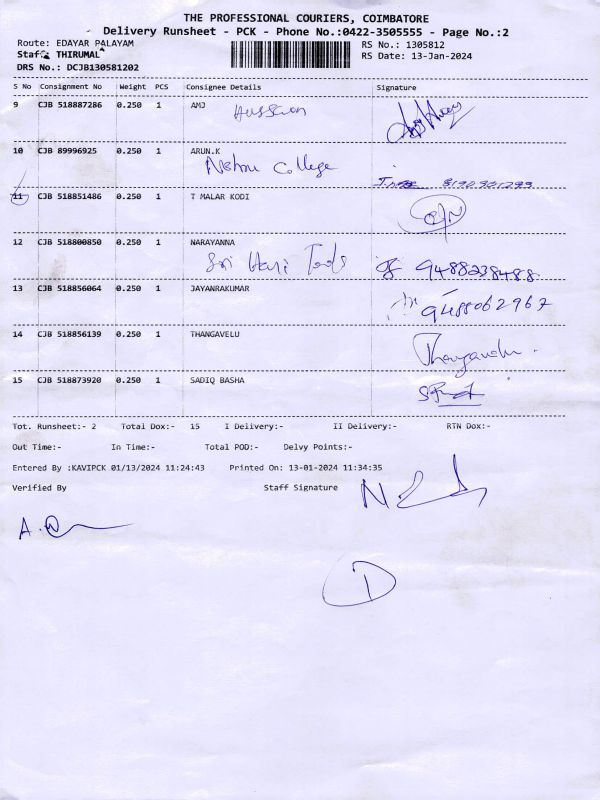 THE PROFESSIONAL COURIERS, COIMBATORE
Delivery Runsheet - PCK - Phone No.:0422-3505555 - Page No.:2
Route: EDAYAR PALAYAM RS No.: 1305812
Staff: THIRUMAL RS Date: 13-Jan-2024
DRS No.: DCJB130581202
S No Consignment No Weight PCS Consignee Details Signature
9 CJB 518887286 0.250 1 AMJ
10 CJB 89996925 0.250 1 ARUN.K
Nehru College
8190901299
11 CJB 518851486 0.250 1 T MALAR KODI
12 CJB 518800850 0.250 1 NARAYANNA
Sri Hari Tools 9488238488
13 CJB 518856064 0.250 1 JAYANRAKUMAR
9488062967
14 CJB 518856139 0.250 1 THANGAVELU
Thangavelu.
15 CJB 518873920 0.250 1 SADIQ BASHA
Tot. Runsheet:- 2 Total Dox:- 15 I Delivery:- II Delivery:- RTN Dox:-
Out Time:- In Time:- Total POD:- Delvy Points:-
Entered By :KAVIPCK 01/13/2024 11:24:43 Printed On: 13-01-2024 11:34:35
Verified By Staff Signature
D